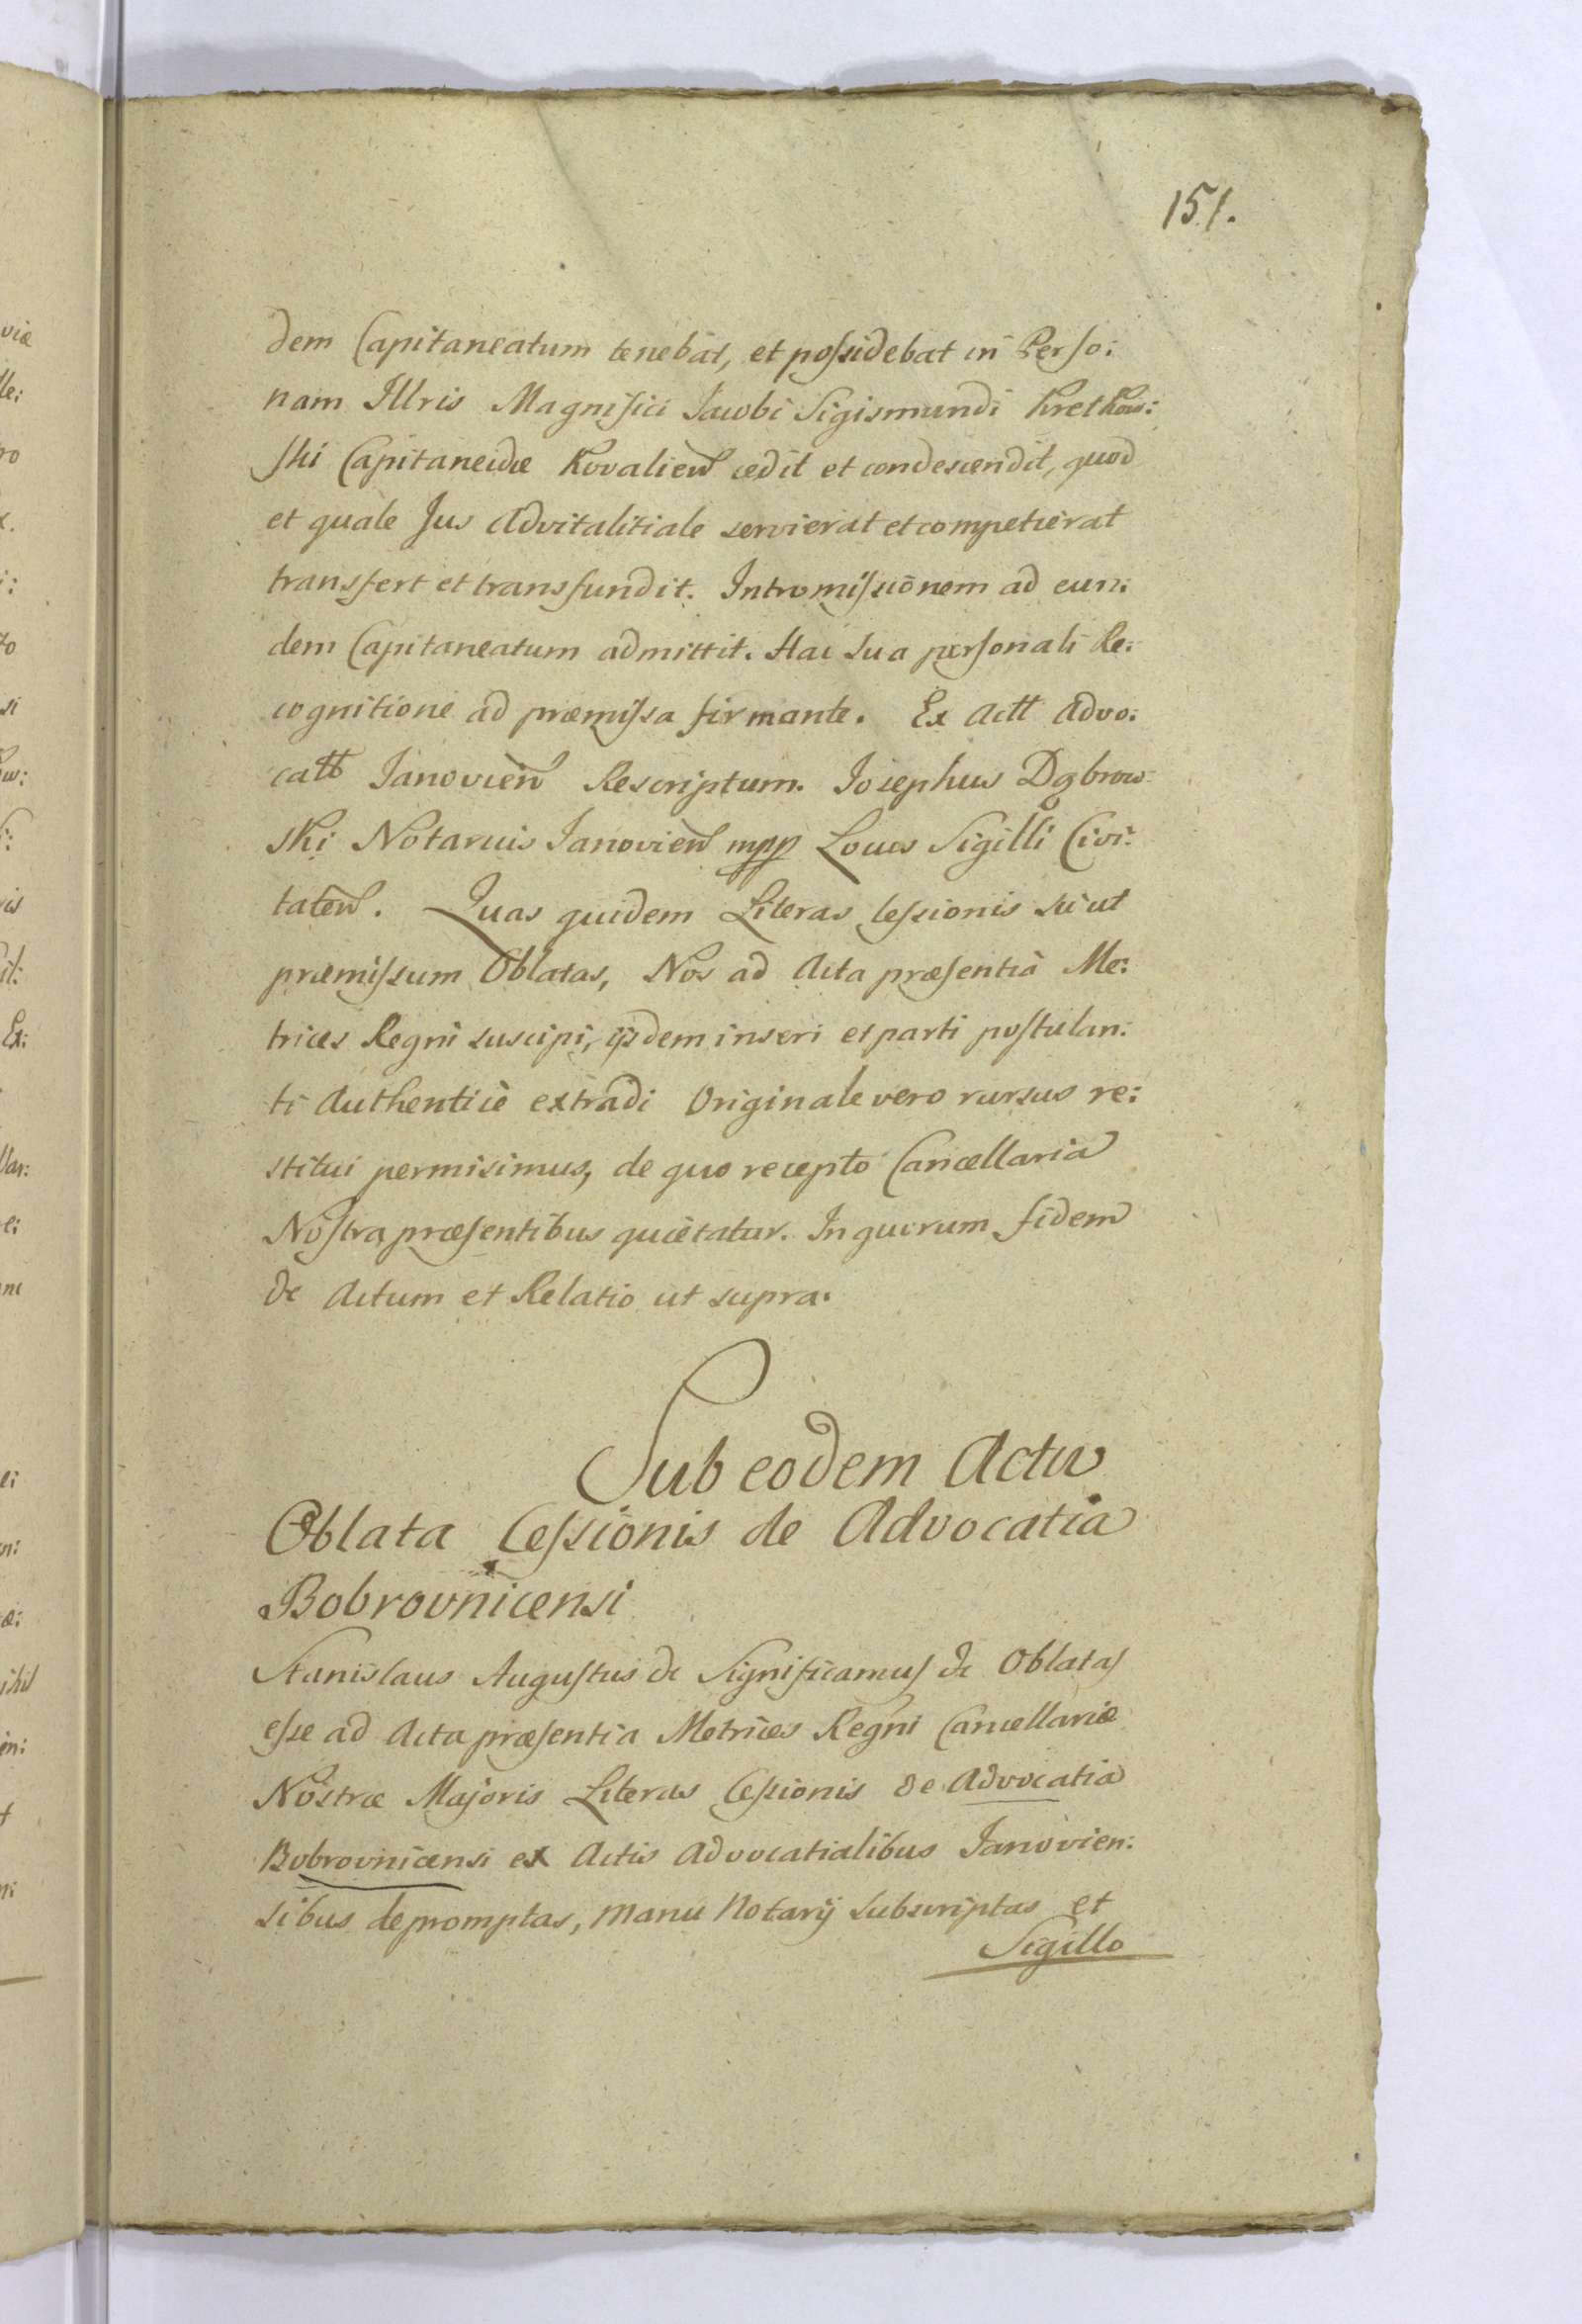 151.
dem Capitaneatum tenebat, et possidebat in Perso:
nam Illris Magnifici Jacobi Sigismundi Krethow:
ski Capitaneidæ Kovalien cedit et condescendit, quod
et quale Jus Advitalitiale servierat et competierat
transfert et transfundit. Intromissionem ad eun:
dem Capitaneatum admittit. Hac sua personali Re:
cognitione ad præmissa firmante. Ex Actt Advo:
catt Janovien Rescriptum. Josephus Dąbrow:
ski Notarius Janovien mpp Locus Sigilli Civi:
taten. Quas quidem Literas Cessionis sicut
præmissum Oblatas, Nos ad Acta præsentia Me:
trices Regni suscipi, ijsdem inseri et parti postulan:
ti Authentice extradi Originale vero rursus re:
stitui permisimus, de quo recepto Cancellaria
Nostra præsentibus quietatur. In quorum fidem
&c Actum et Relatio ut supra.
Sub eodem Actu
Oblata Cessionis de Advocatia
Bobrovnicensi
Stanislaus Augustus &c Significamus &c Oblatas
esse ad Acta præsentia Metrices Regni Cancellariæ
Nostræ Majoris Literas Cessionis de Advocatia
Bobrovnicensi ex Actis Advocatialibus Janovien:
sibus depromptas, manu Notarij subscriptas et
Sigillo